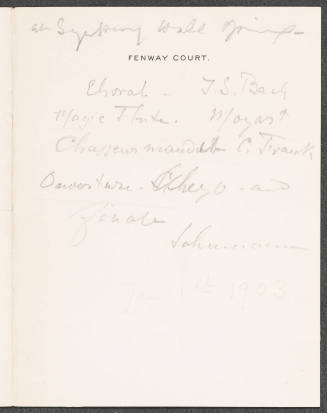 at Symphony Hall
FENWAY COURT.
Choral - J. S. Bach
Magic Flute. Mozart
Chasseur maudit C. Franck
Overture. Scherzo. and
Finale
Schumann
Jan 1st 1903